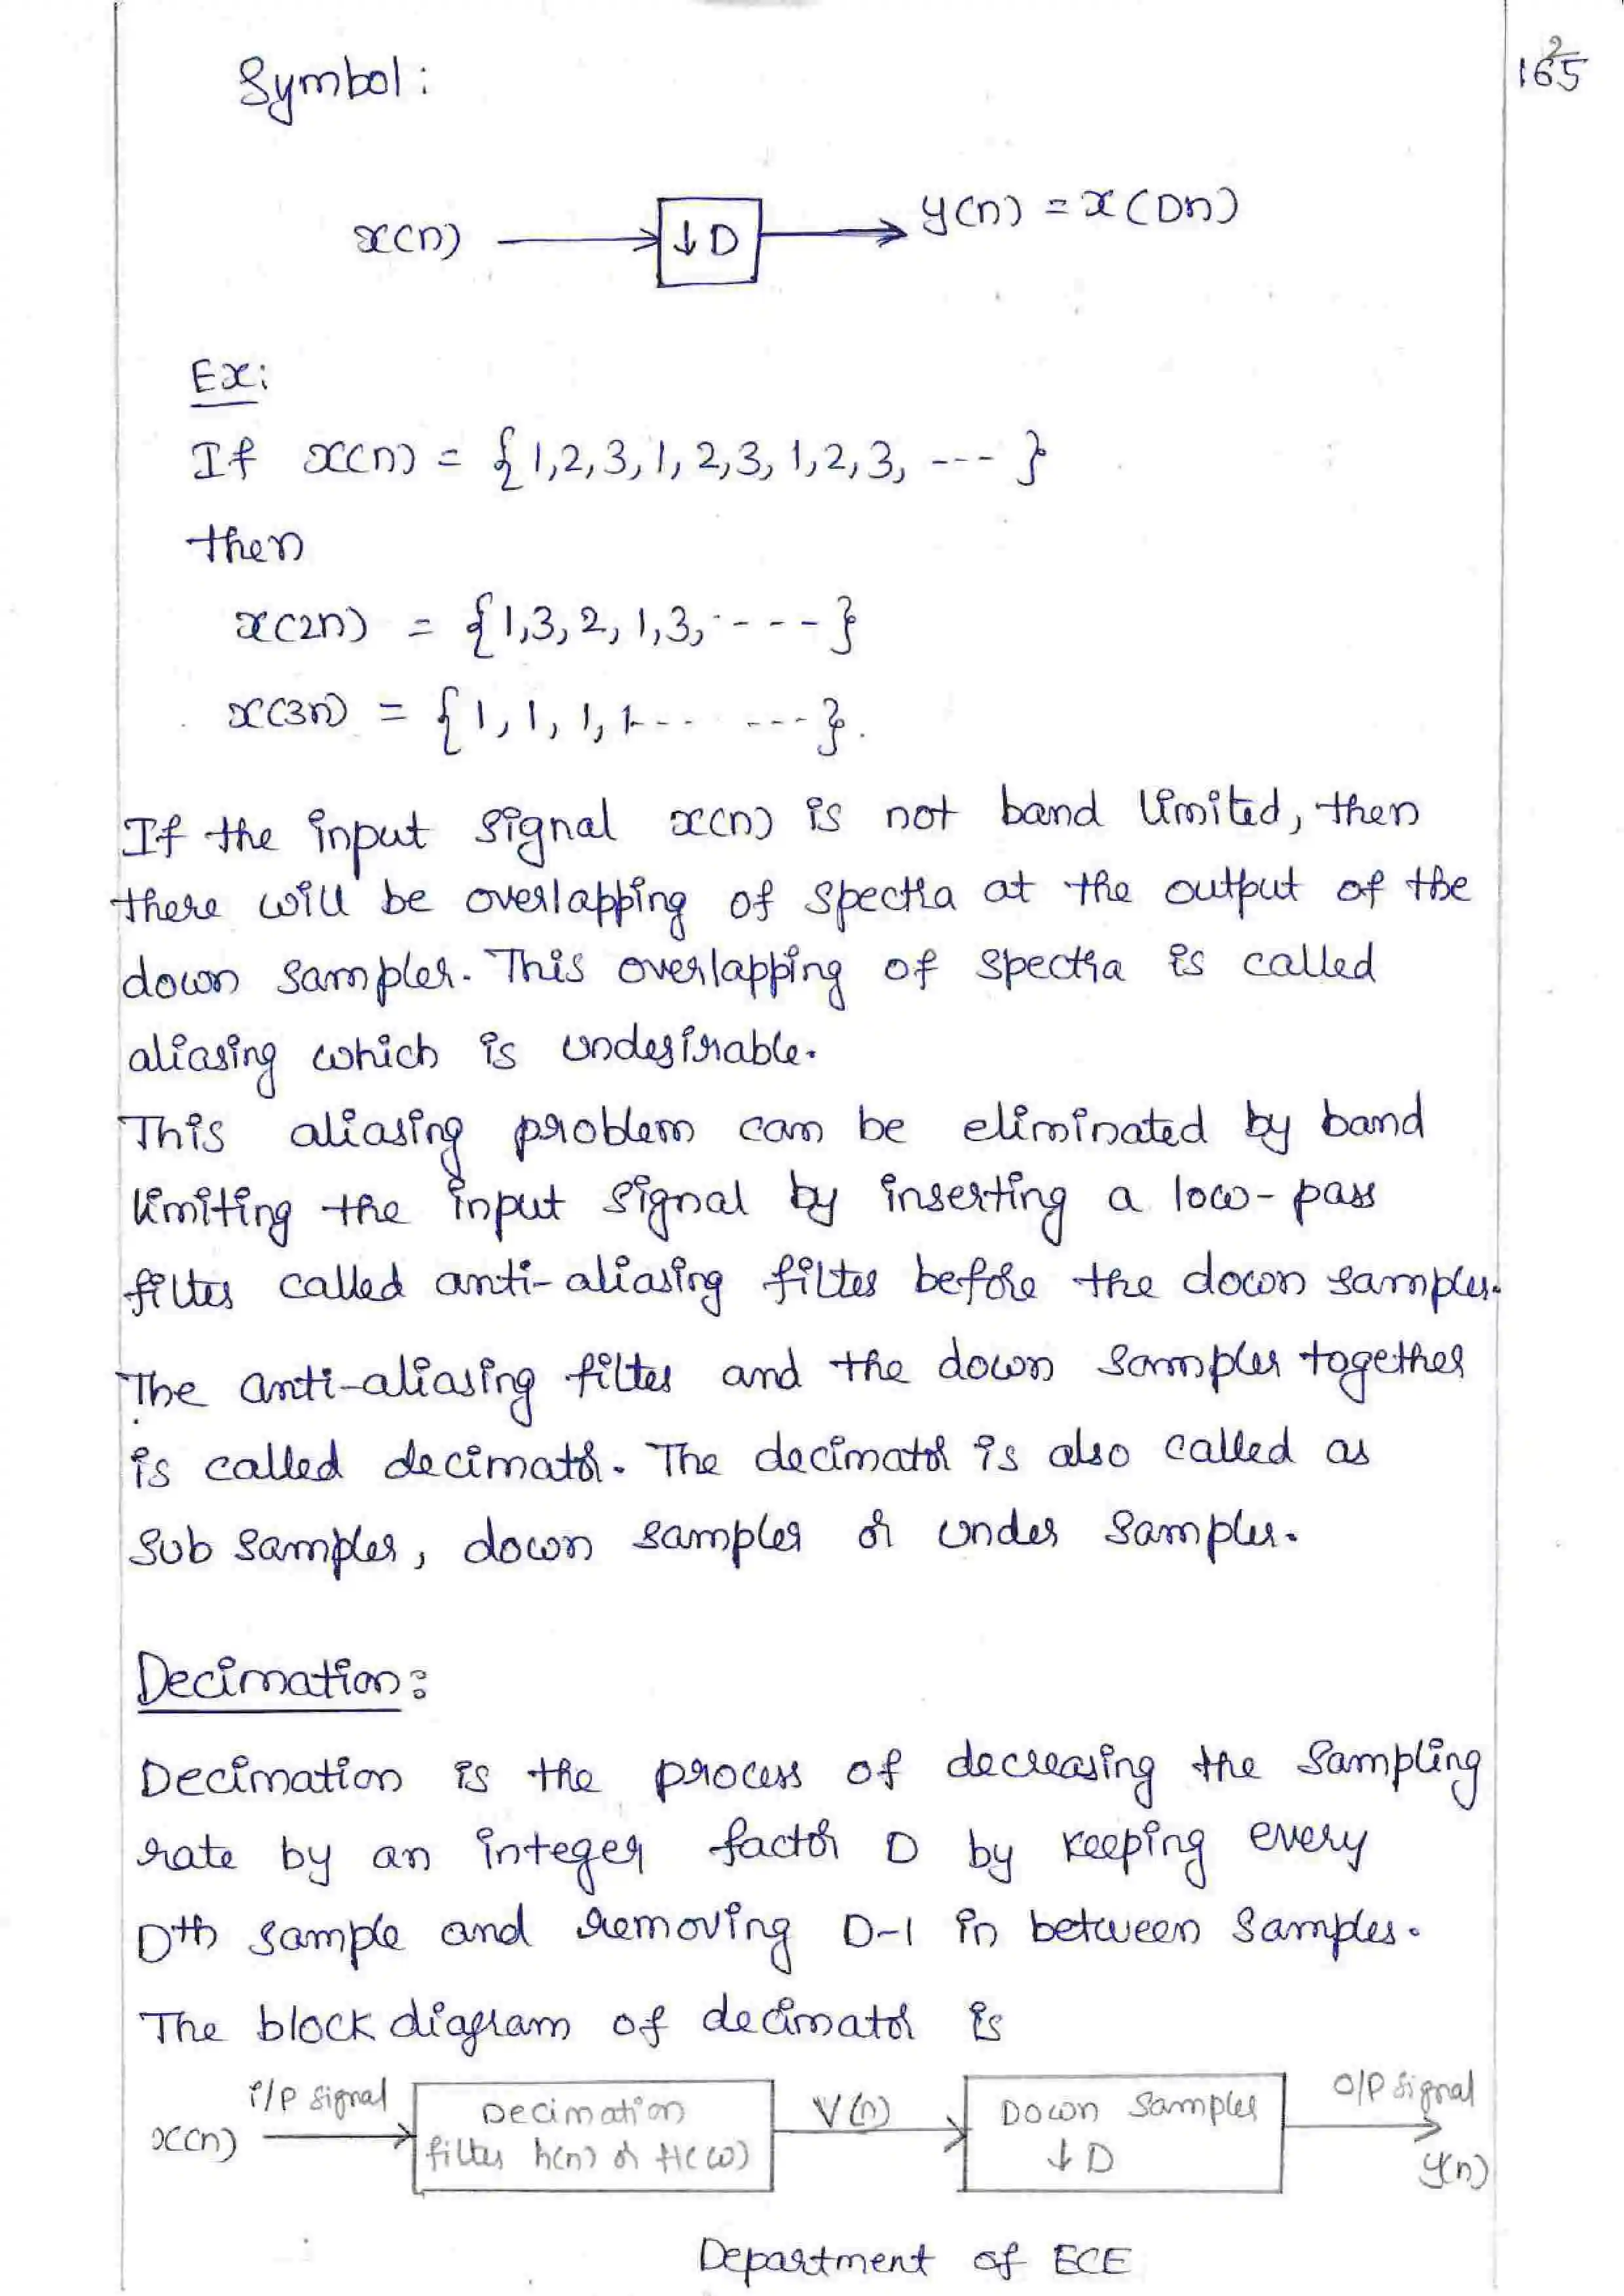 2
165
Symbol:
x(n) ↓D y(n) = x(Dn)
Ex:
If x(n) = {1,2,3,1,2,3,1,2,3, --- }
then
x(2n) = {1,3,2,1,3, - - - -}
x(3n) = {1,1,1,1--- ---}.
If the input signal x(n) is not band limited, then
there will be overlapping of spectra at the output of the
down sampler. This overlapping of spectra is called
aliasing which is undesirable.
This aliasing problem can be eliminated by band
limiting the input signal by inserting a low-pass
filter called anti-aliasing filter before the down sampler.
The anti-aliasing filter and the down sampler together
is called decimator. The decimator is also called as
Sub sampler, down sampler or under sampler.
Decimation:
Decimation is the process of decreasing the sampling
rate by an integer factor D by keeping every
Dth sample and removing D-1 in between samples.
The block diagram of decimator is
x(n) i/p signal Decimation V(n) Down Sampler O/P signal
filter h(n) or H(ω) ↓D y(n)
Department of ECE